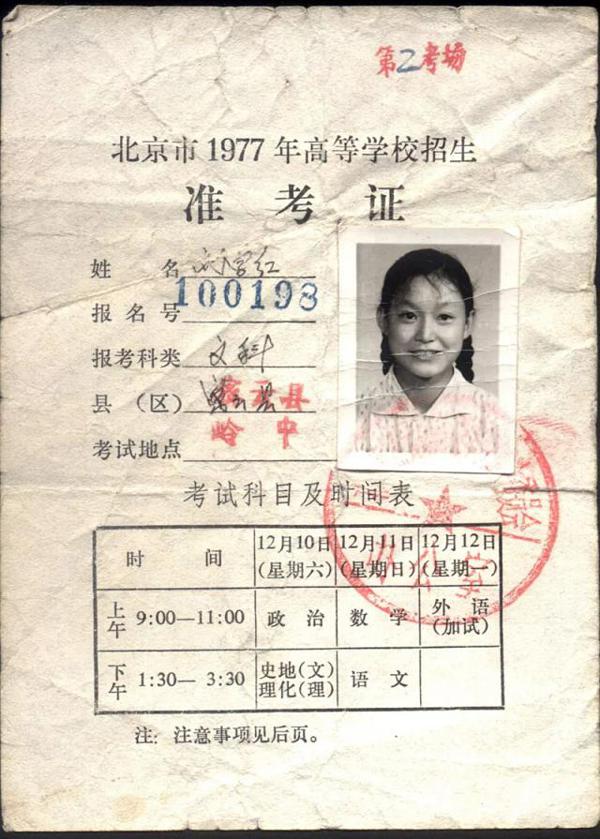 第2考场
北京市1977年高等学校招生
准考证
姓 名 刘学红
报名号 100198
报考科类 文科
县(区) 密云县 密云县
考试地点 岭中
考试科目及时间表
时 间 12月10日(星期六) 12月11日(星期日) 12月12日(星期一)
上午 9:00—11:00 政治 数学 外语(加试)
下午 1:30—3:30 史地(文)理化(理) 语文
注:注意事项见后页。